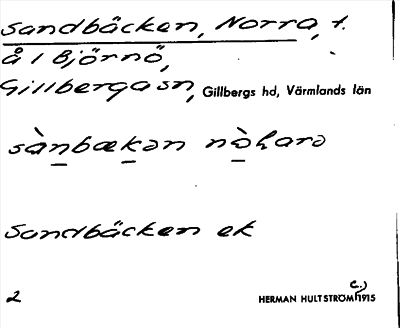 Sandbäcken, Norra, t.
å 1 Björnö,
Gillberga sn, Gillbergs hd, Värmlands län
sànbækən nòharə
Sandbäcken ek
c.)
2 HERMAN HULTSTRÖM 1915